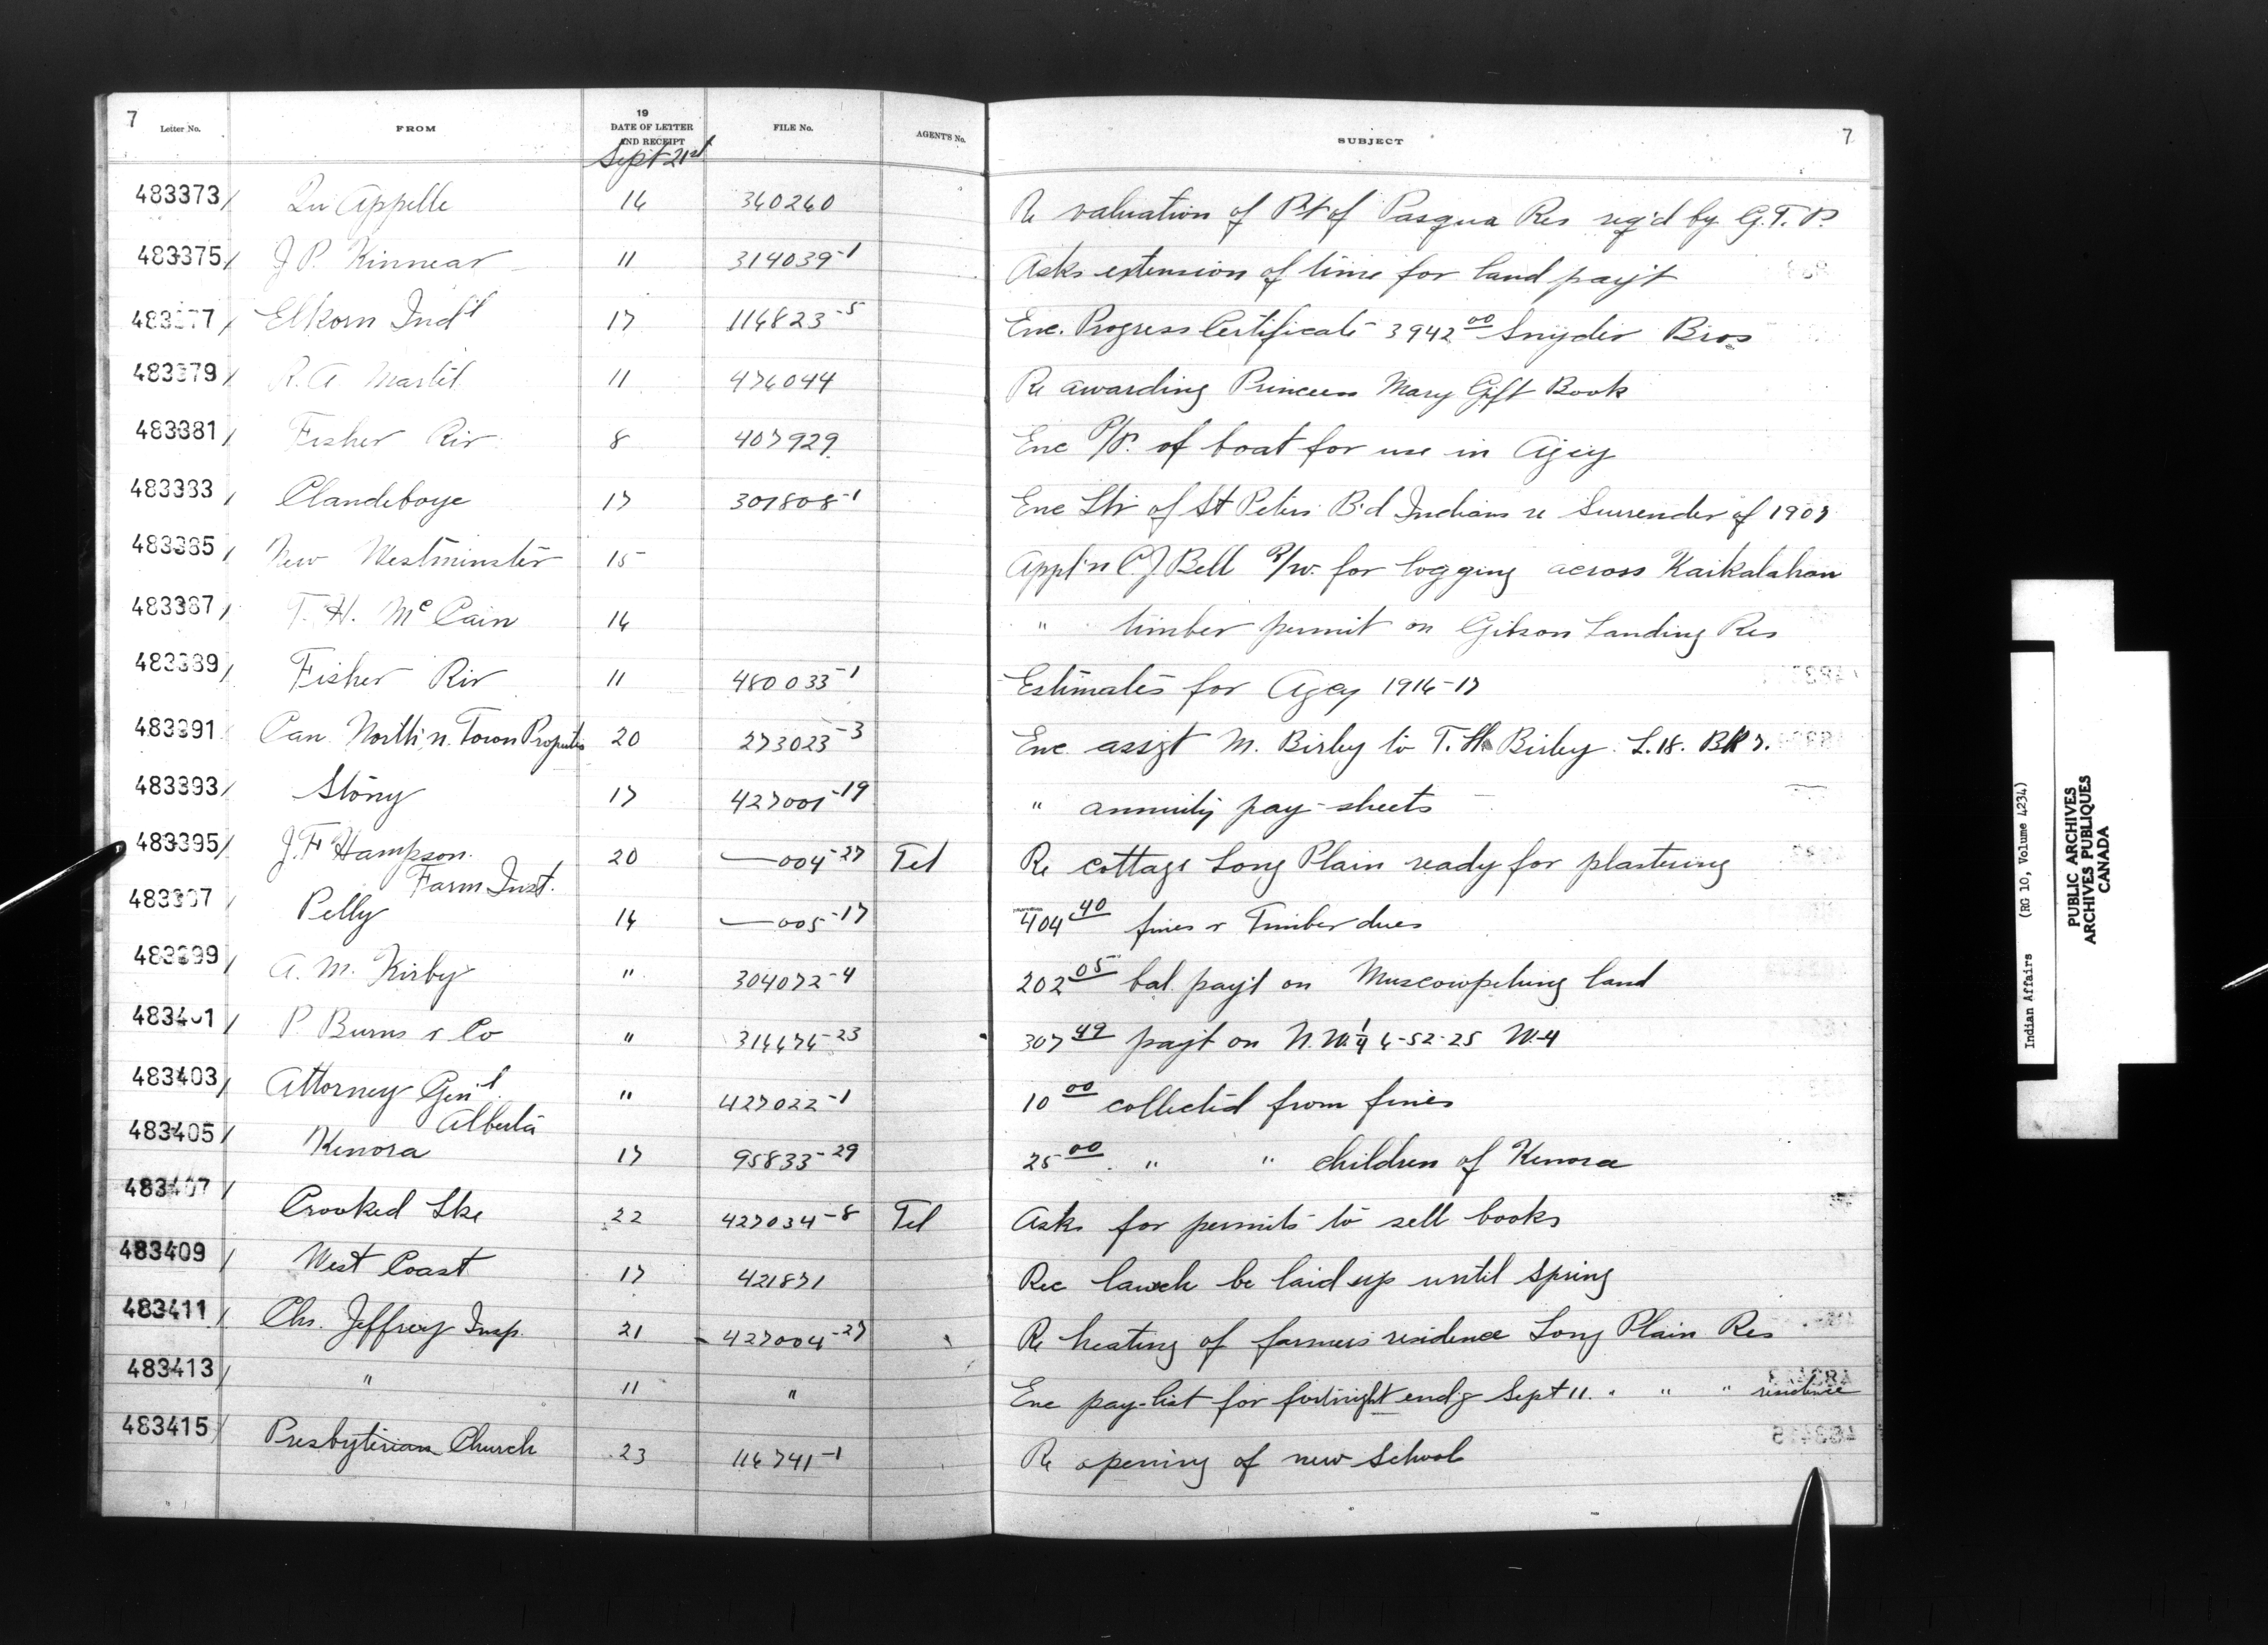 7 Letter No. FROM 19 DATE OF LETTER AND RECEIPT FILE No. AGENT'S No. SUBJECT 7
Sept 21st
483373/ Qu Appelle 16 360260 Re valuation of Pt of Pasqua Res reg'd by G.T.P.
483375/ J P. Kinnear 11 314039-1 Asks extension of time for land pay't
483377/ Elkorn Ind'l 17 116823-5 Enc. Progress Certificate 3942 00 Snyder Bros
483379/ R. A. Martil 11 476044 Re awarding Princess Mary Gift Book
483381/ Fisher Riv 8 407929 Enc P/P. of boat for use in Agcy
483383/ Clandeboye 17 307808-1 Enc Ltr of St Peters B'd Indians re Surrender of 1907
483385/ New Westminster 15 Appl'n C. J. Bell R/w. for logging across Kaikalahan
483387/ T. H. McCain 16 " timber permit on Gibson Landing Res
483389/ Fisher Riv 11 480033-1 Estimates for Agcy 1916-17
483391/ Can North'n Town Propertis 20 273023-3 Enc assgt M. Birby to T. H. Birby L.18. BK 7.
483393/ Stony 17 427001-19 " annuity pay-sheets
483395/ J. F Hampson. 20 —004-27 Tel Re cottage Long Plain ready for plastering
Farm Inst.
483397/ Pelly 16 —005-17 404 40 fines & Timber dues
483399/ A. M. Kirby " 304072-4 202 05 bal. pay't on Muscowpetung land
483401/ P Burns & Co " 316676-23 307 49 pay't on N. W. 1/4 6-52-25 W-4
483403/ Attorney Gen'l. " 427022-1 10 00 collected from fines
Alberta
483405/ Kenora 17 95833-29 25 00 " " children of Kenora
483407/ Crooked Lke 22 427034-8 Tel Asks for permits to sell books
483409/ West Coast 17 421871 Rec lawch be laid up until spring
483411/ Chs. Jeffrey Insp. 21 427004-27 Re heating of farmers residence Long Plain Res
483413/ " 11 " Enc pay-list for fortnight endg Sept 11. " " " residence
483415/ Presbyterian Church 23 116741-1 Re opening of new School
Indian Affairs (RG 10, Volume 4234)
PUBLIC ARCHIVES
ARCHIVES PUBLIQUES
CANADA